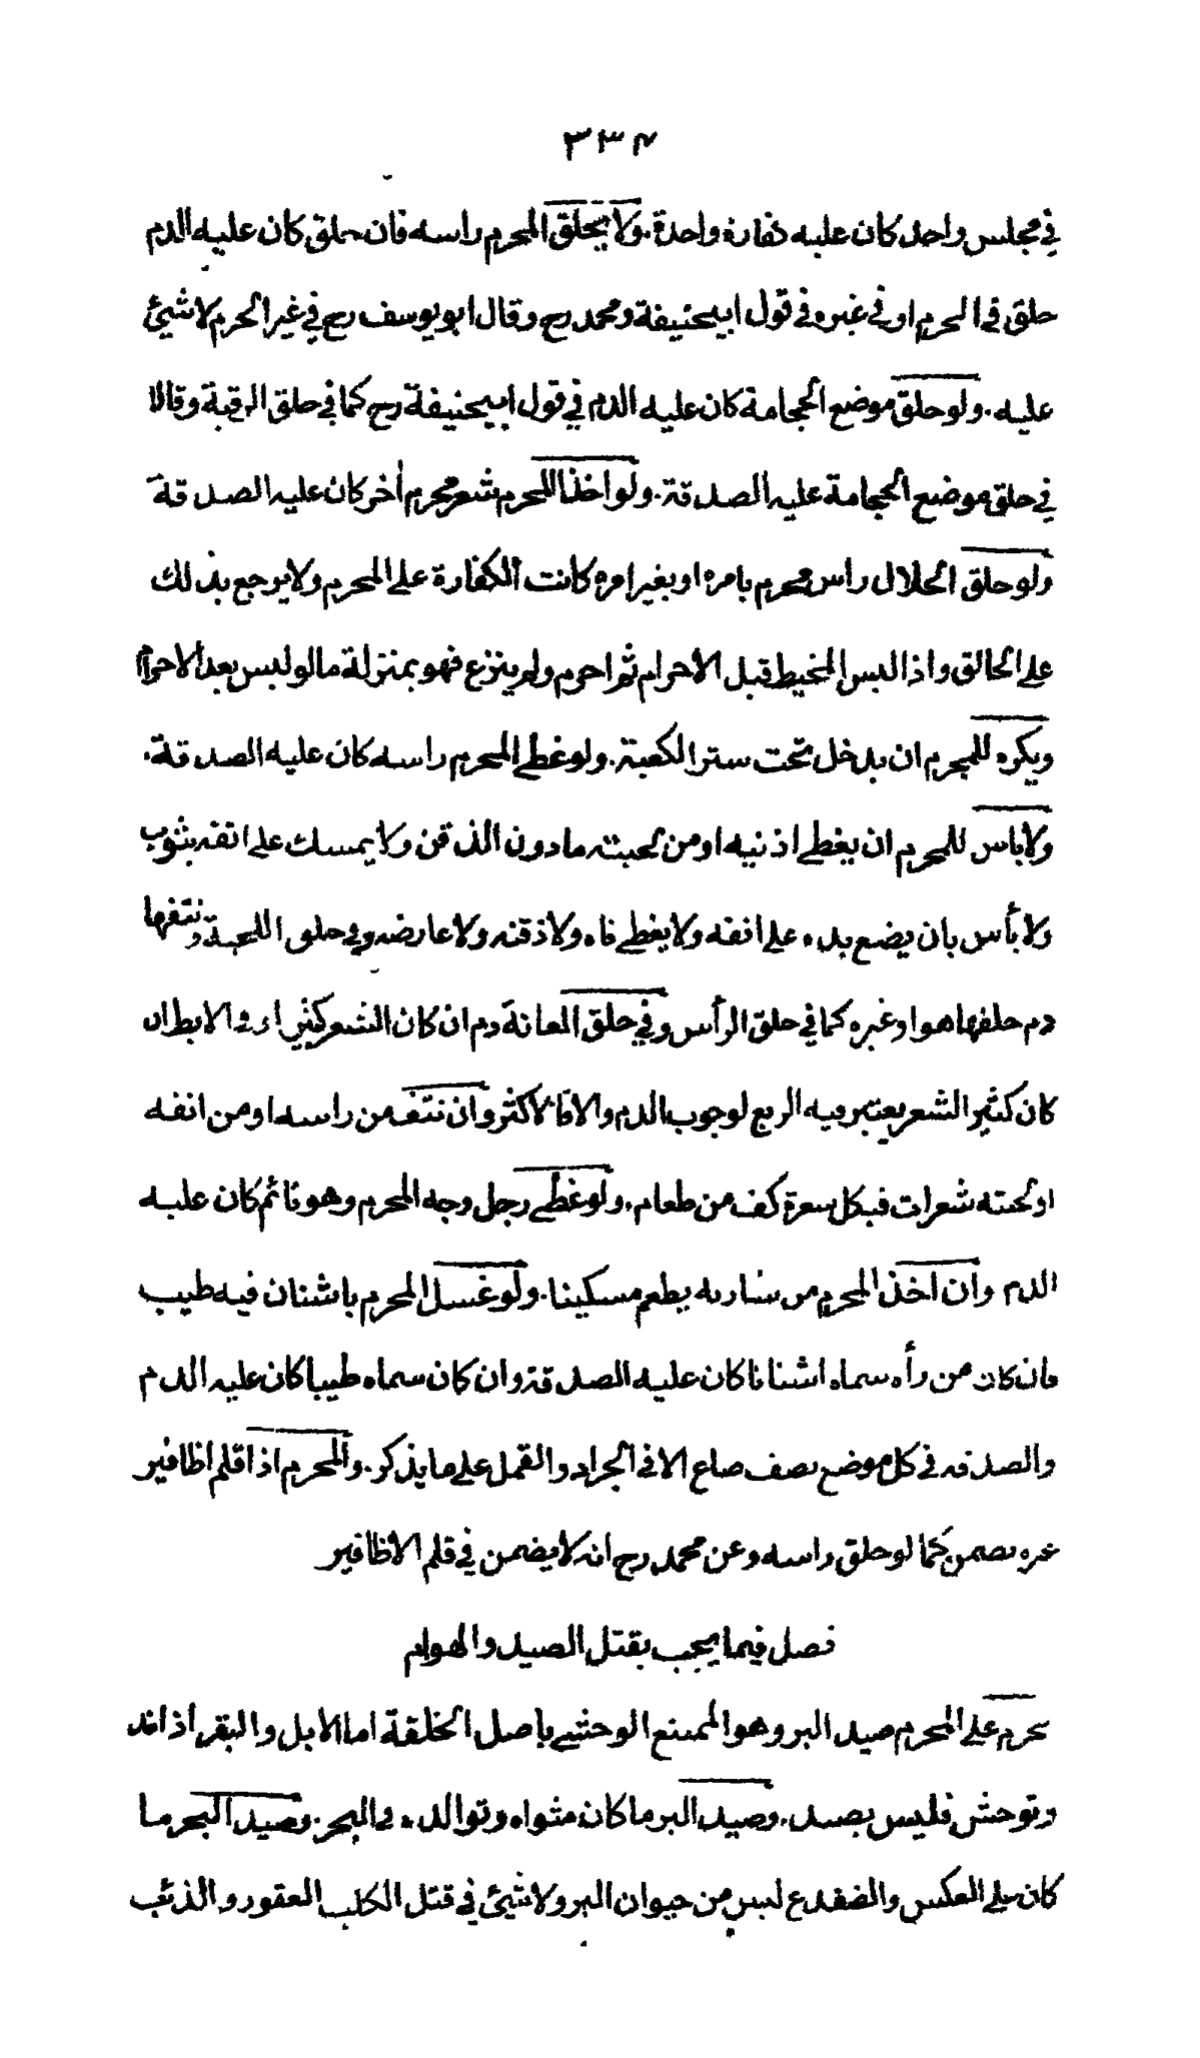 ٣٣٤
في مجلس واحد كان عليه كفارة واحدة. ولا يحلق المحرم راسه فان حلق كان عليه الدم
حلق في الحرم او في غيره في قول ابيحنيفة ومحمد رح وقال ابو يوسف رح في غير الحرم لا شيئ
عليه. ولو حلق موضع الحجامة كان عليه الدم في قول ابيحنيفة رح كما في حلق الرقبة وقالا
في حلق موضع الحجامة عليه الصدقة. ولو اخذ المحرم شعر محرم أخر كان عليه الصدقة
ولو حلق الحلال راس محرم بامره او بغير امره كانت الكفارة على المحرم ولا يرجع بذلك
على الحالق واذا لبس المخيط قبل الاحرام ثم احرم ولم ينزع فهو بمنزلة ما لو لبس بعد الاحرام
ويكره للمحرم ان يدخل تحت ستر الكعبة. ولو غطى المحرم راسه كان عليه الصدقة.
ولا باس للمحرم ان يغطي اذنيه او من لحيته ما دون الذقن ولا يمسك على انفه بثوب
ولا بأس بان يضع يده على انفه ولا يغطي فاه ولا ذقنه ولا عارضه وفي حلق اللحية ونتفها
دم حلقها هو او غيره كما في حلق الرأس وفي حلق العانة دم ان كان الشعر كثيرا وفي الابط ان
كان كثير الشعر يعتبر فيه الربع لوجوب الدم والا فالاكثر وان نتف من راسه او من انفه
او لحيته شعرات فبكل شعرة كف من طعام. ولو غطى رجل وجه المحرم وهو نائم كان عليه
الدم وان اخذ المحرم من شاربه يطعم مسكينا. ولو غسل المحرم باشنان فيه طيب
فان كان من رأه سماه اشنانا كان عليه الصدقة وان كان سماه طيبا كان عليه الدم
والصدقة في كل موضع نصف صاع الا في الجراد والقمل على ما يذكر. والمحرم اذا قلم اظافير
غيره يضمن كما لو حلق راسه وعن محمد رح انه لا يضمن في قلم الاظافير
فصل فيما يجب بقتل الصيد والهوام
يحرم على المحرم صيد البر وهو الممتنع الوحشي باصل الخلقة اما الابل والبقر اذا ند
وتوحش فليس بصيد. وصيد البر ما كان مثواه وتوالده في البحر. وصيد البحر ما
كان على العكس والضفدع ليس من حيوان البر ولا شيئ في قتل الكلب العقور والذئب